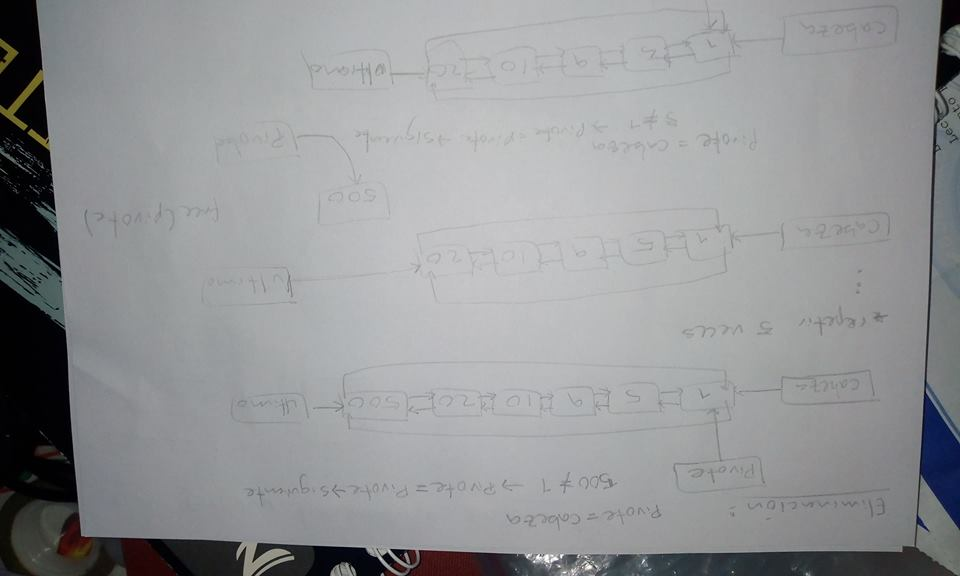 Eliminación :
Pivote = Cabeza
500 ≠ 1 → Pivote = Pivote → Siguiente
Pivote
Cabeza 1 5 9 10 20 500 Ultimo
* repetir 5 veces
Cabeza 1 5 9 10 20 Ultimo
free(pivote)
500
Pivote
Pivote = Cabeza
5 ≠ 1 → Pivote = Pivote → siguiente
Cabeza 1 5 9 10 20 Ultimo